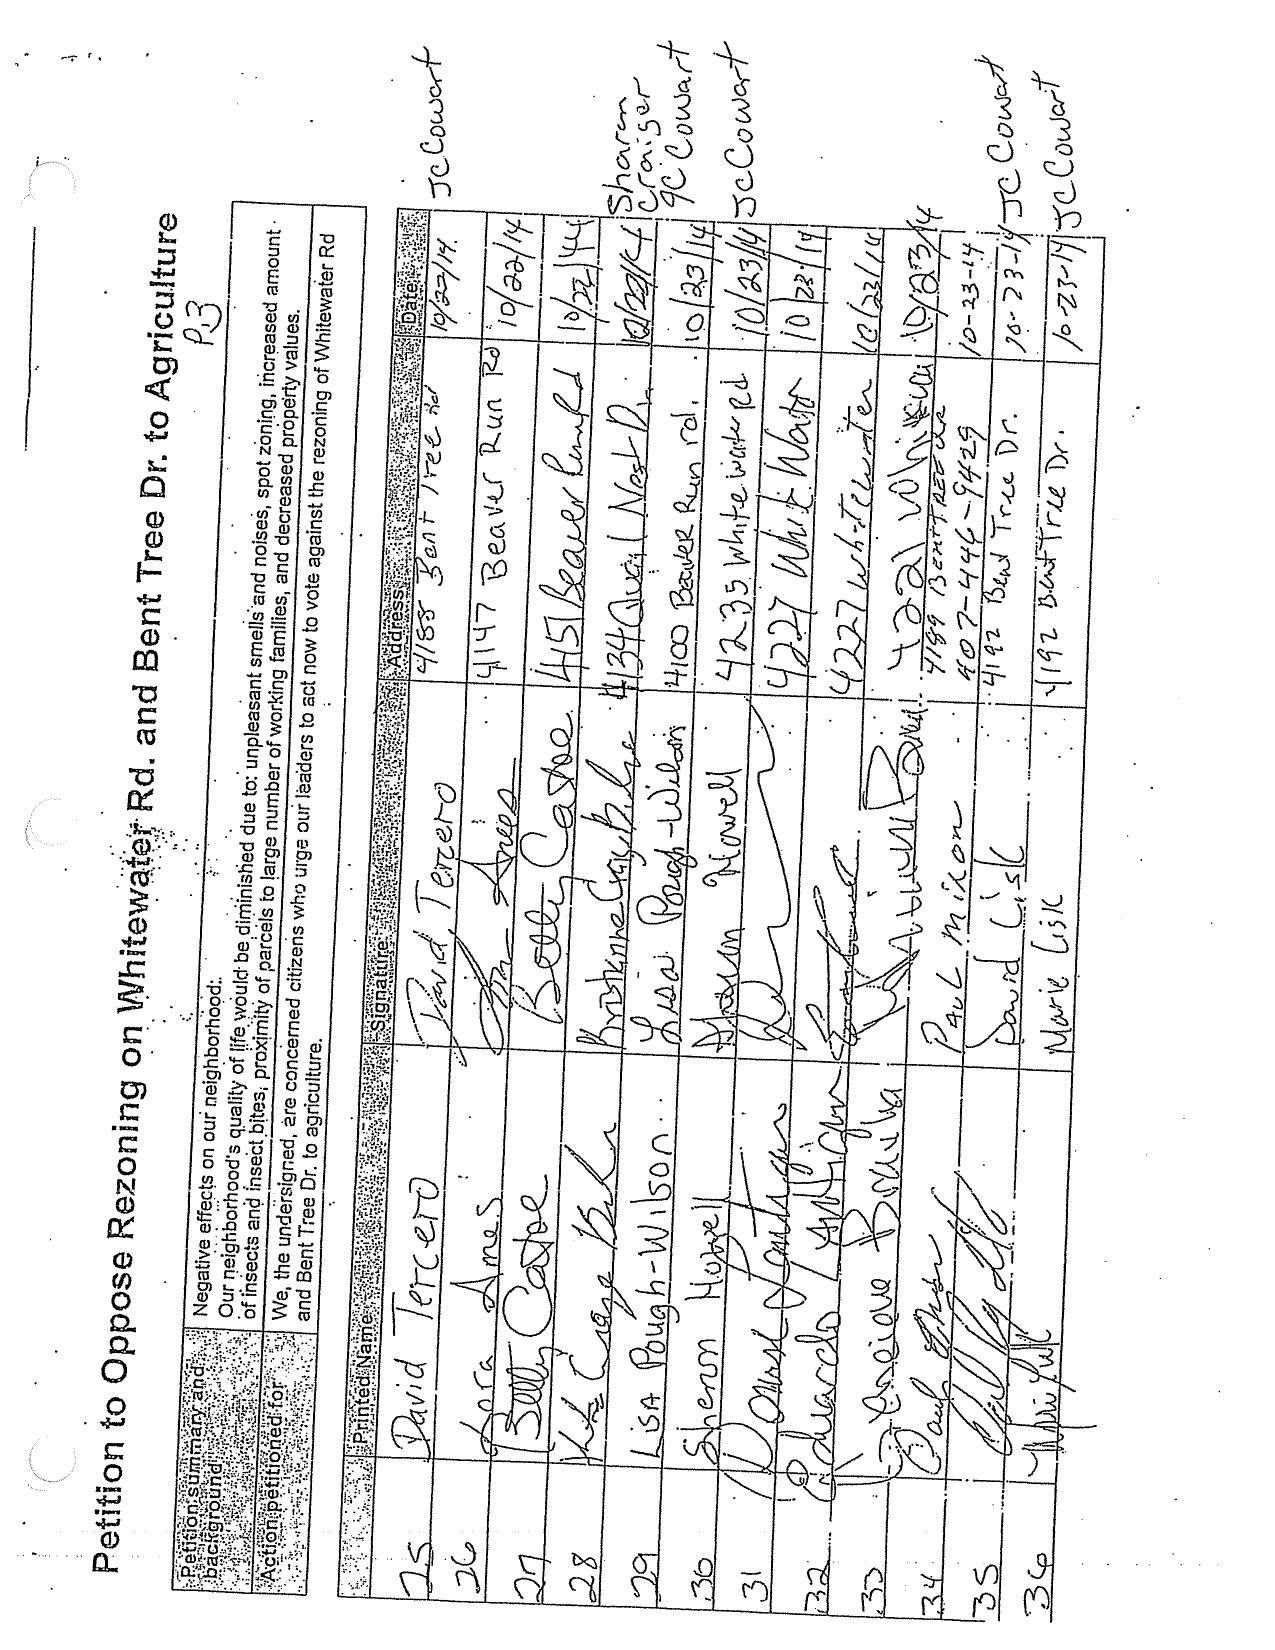 Petition to Oppose Rezoning on Whitewater Rd. and Bent Tree Dr. to Agriculture
P.3
Petition summary and background
Negative effects on our neighborhood:
Our neighborhood's quality of life would be diminished due to: unpleasant smells and noises, spot zoning, increased amount
of insects and insect bites, proximity of parcels to large number of working families, and decreased property values.
Action petitioned for
We, the undersigned, are concerned citizens who urge our leaders to act now to vote against the rezoning of Whitewater Rd
and Bent Tree Dr. to agriculture.
Printed Name Signature Address Date
25 David Tercero David Tercero 4188 Bent Tree Rd 10/22/14 JC Cowart
26 Ames Ames 4147 Beaver Run Rd 10/22/14
27 Betty Castoe Betty Castoe 4151 Beaver Run Rd 10/22/14
28 4134 Quail Nest Dr. 10/22/14 Sharon
Craiger
29 Lisa Pough-Wilson Lisa Pough-Wilson 4100 Beaver Run rd. 10/23/14 JC Cowart
30 Sharon Howell Sharon Howell 4235 Whitewater Rd 10/23/14 JC Cowart
31 4227 White Water 10/23/14
32 Eduardo 4227 Whitewater 10/23/14
33 4221 10/23/14
34 Paul Mixon 4189 Bent Tree Dr 10-23-14
407-446-9429
35 David Lisk 4192 Bent Tree Dr. 10-23-14 JC Cowart
36 Marie Lisk 4192 Bent Tree Dr. 10-23-14 JC Cowart